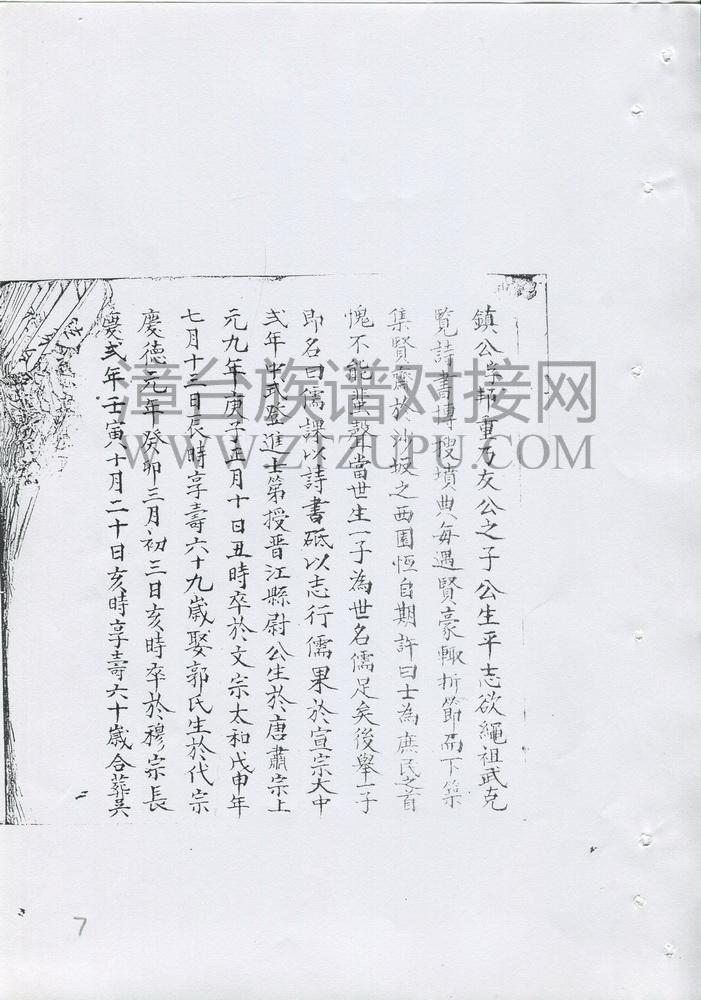 鎮公字邦重乃友公之子公生平志欲繩祖武克
覽詩書博搜墳典每遇賢豪輙折節而下築
集賢齋於沙坂之西園恆自期許曰士為庶民之首
愧不能蜚聲當世生一子為世名儒足矣後舉一子
即名曰儒課以詩書砥以志行儒果於宣宗大中
弍年中式登進士第授晋江縣尉公生於唐肅宗上
元九年庚子正月十日丑時卒於文宗太和戊申年
七月十三日辰時享壽六十九歲娶郭氏生於代宗
慶德元年癸卯三月初三日亥時卒於穆宗長
慶弍年壬寅十月二十日亥時享壽六十歲合葬吴
漳台族谱对接网
WWW.ZTZUPU.COM
7